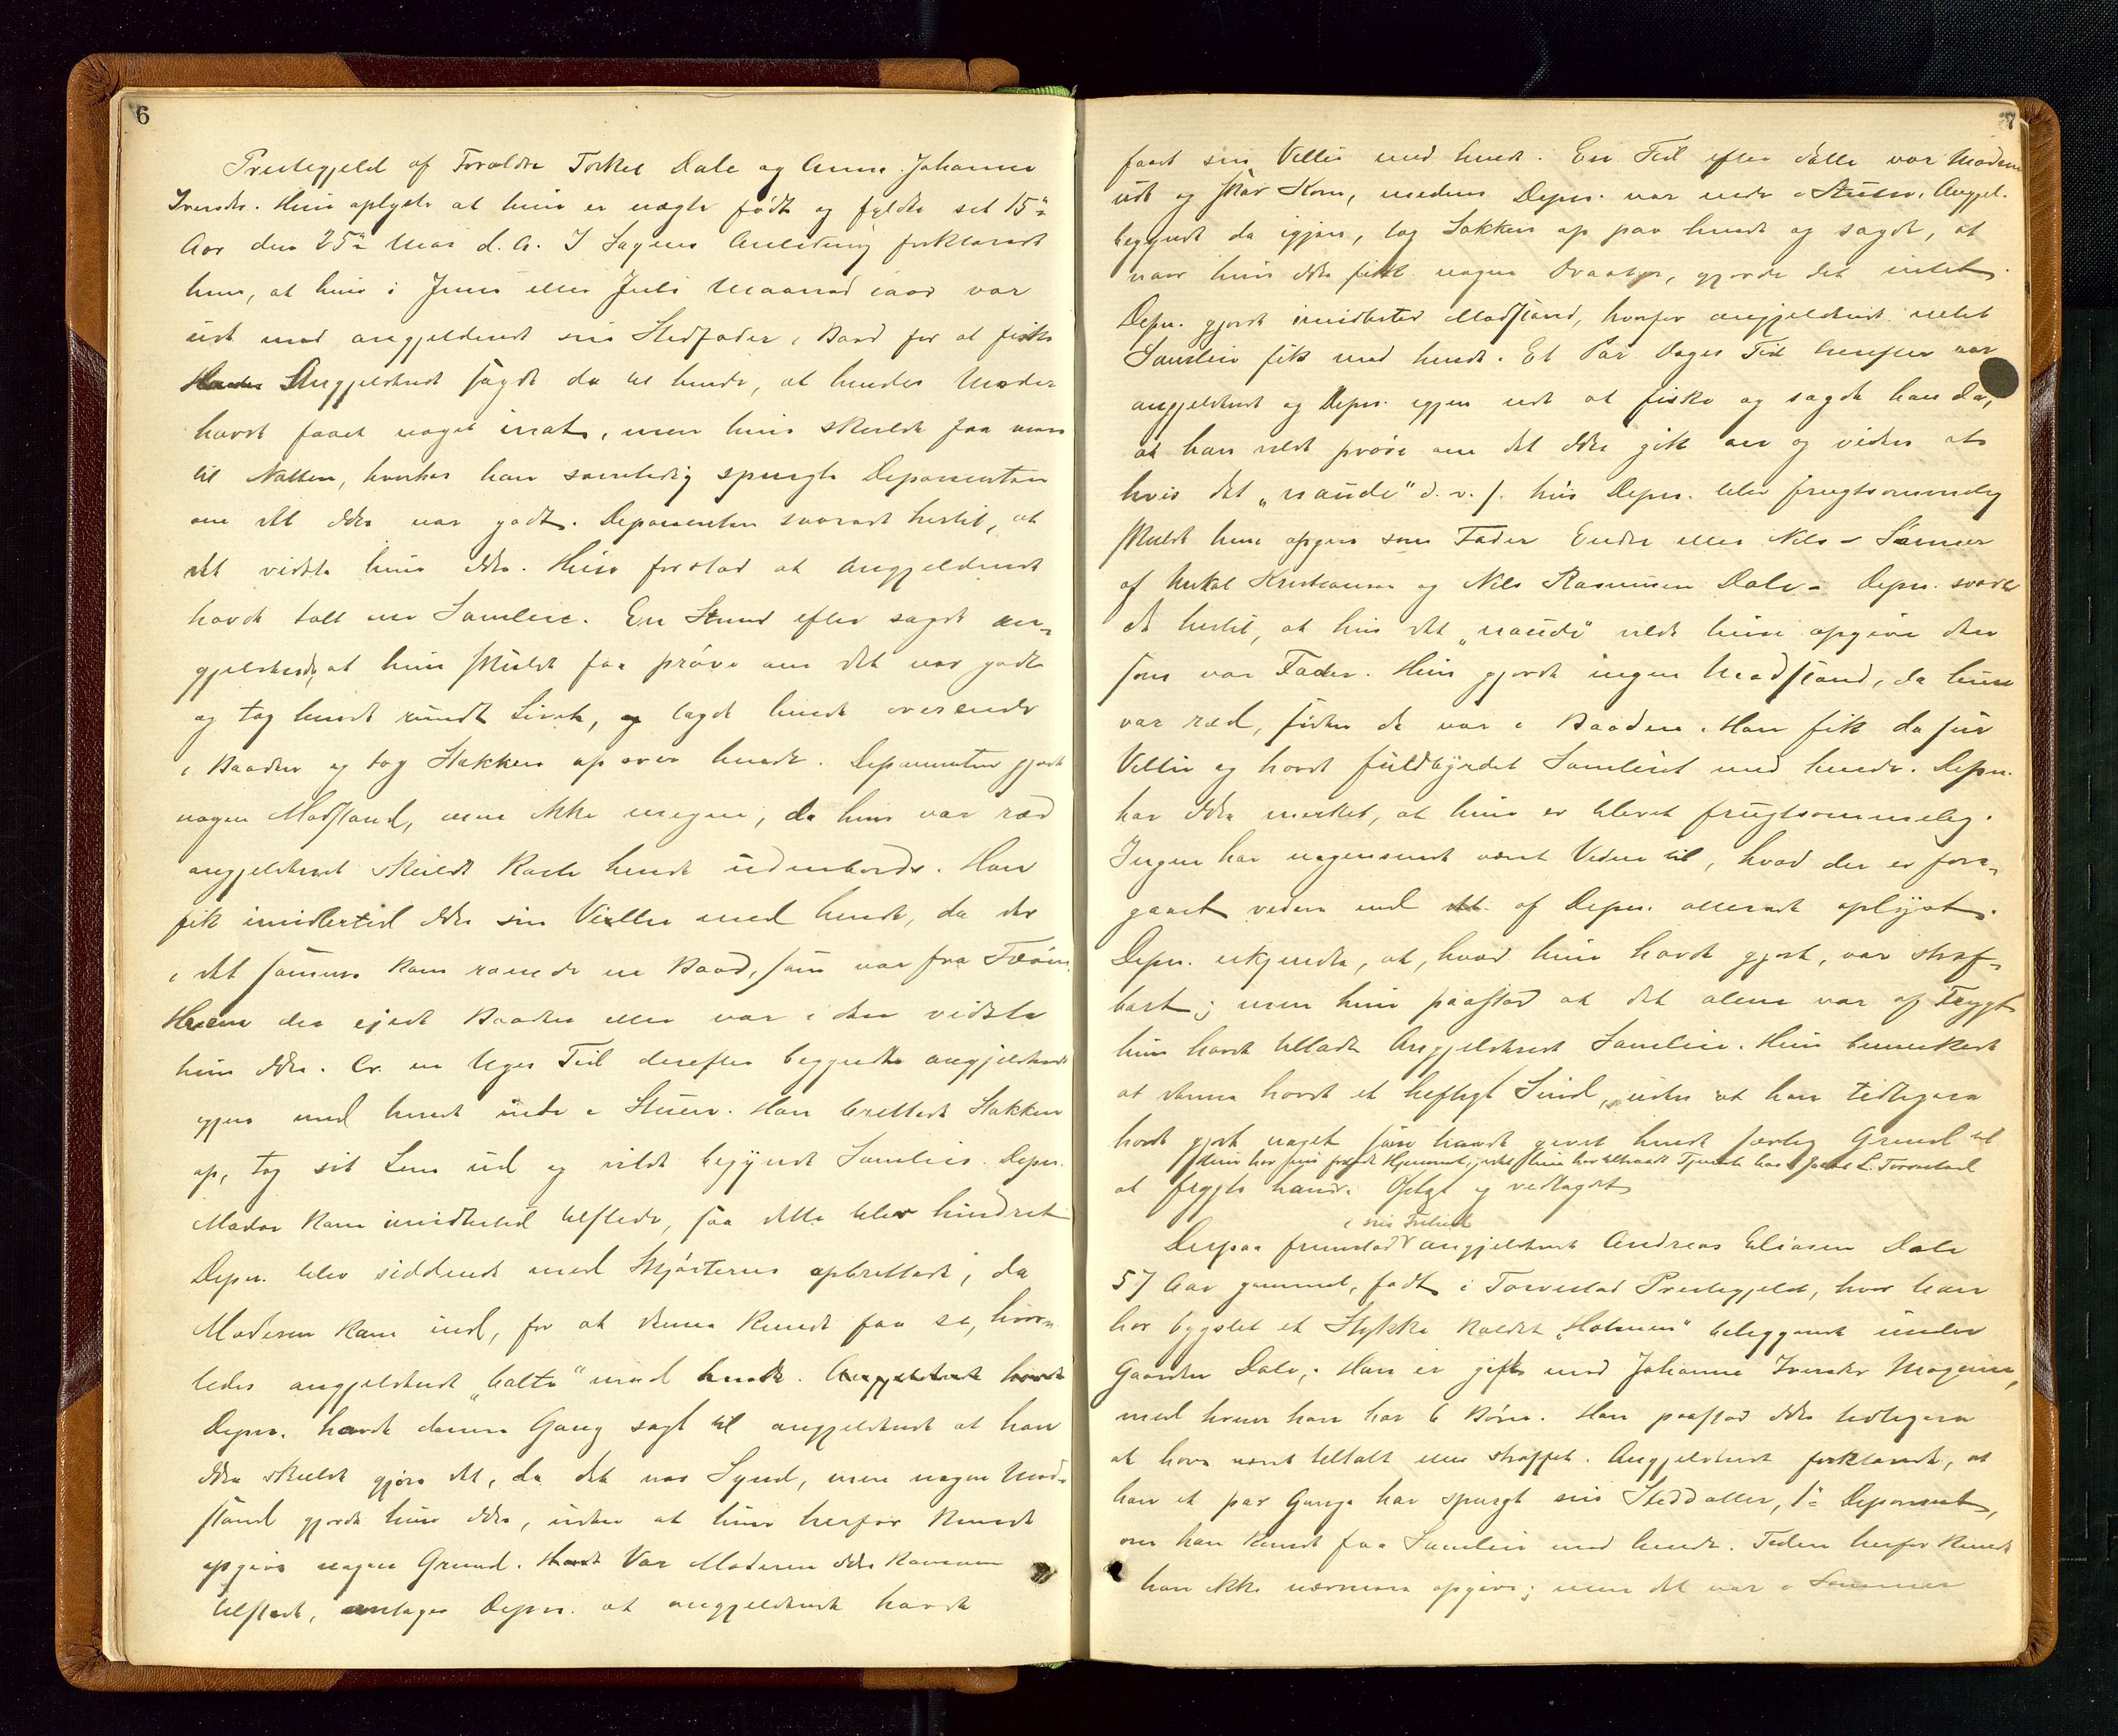 6
Prestegjeld af Forældre Torkel Dale og Anna Johanna
Iversdtr. Hun oplyste at hun er uægte født og fyldte sit 15de
Aar den 25de Mai d. A. I Sagens Anledning forklarede
hun, at hun i Juni eller Juli Maaned iaar var
ude med angjeldende sin Stedfader i Baad for at fiske
Angjeldende sagde da til hende, at hendes Moder
havde faaet noget inat, men hun skulde faa mere
til Natten, hvorhos han samtidig spurgte Deponenten
om det ikke var godt. Deponenten svarede hertil, at
det vidste hun ikke. Hun forstod at Angjeldende
havde talt om Samleie. En Stund efter sagde an-
gjeldende, at hun skulde faa prøve om det var godt
og tog hende rundt Livet, og lagde hende overende
i Baaden og tog Stakken op over hende. Deponenten gjorde
nogen Modstand, men ikke megen, da hun var ræd
angjeldende skulde kaste hende udenbords. Han
fik imidlertid ikke sin Villie med hende, da der
i det samme kom roende en Baad, som var fra Feøen
Hvem der eiede Baaden eller var i den vidste
hun ikke. Ca. en Uges Tid derefter begyndte angjeldende
igjen med hende inde i Stuen. Han brettede Stakken
op, tog sit Lem ud og vilde begynde Samleie. Depn.
Moder kom imidlertid tilstede, saa dette blev hindret
Depn. blev siddende med Skjørterne opbrettede, da
Moderen kom ind, for at denne kunde faa se, hvor-
ledes angjeldende "balte" med hende. Angjeldende havde
Depn. havde denne Gang sagt til angjeldende at han
ikke skulde gjøre det, da det var Synd, men nogen Mod-
stand gjorde hun ikke, uden at hun herfor kunde
opgive nogen Grund. Var Moderen ikke kommen
tilstede, antages Depn. at angjeldende havde
7
faaet sin Villie med hende. En Tid efter dette var Moderen
ude og skar Korn, medens Depn. var inde i Stuen. Angjel.
begyndte da igjen, tog Stakken op paa hende og sagde, at
naar hun ikke fik nogen Draaber, gjorde det intet.
Depn. gjorde imidlertid Modstand, hvorfor angjeldende intet
Samleie fik med hende. Et Par Dages Tid herefter var
angjeldende og Depn. igjen ude at fiske og sagde han da,
at han vilde prøve om det ikke gik an og videre at
hvis det "naude" d. v. s. hvis Depn. blev frugtsommelig
skulde hun opgive som Fader Endre eller Nils - Sønner
af Mikal Kristiansen og Nils Rasmusen Dale - Depn. svare
de hertil, at hvis det "naude" vilde hun opgive den
som var Fader. Hun gjorde ingen Modstand, da hun
var ræd, siden de var i Baaden. Han fik da sin
Villie og havde fuldbyrdet Samleie med hende. Depn.
har ikke merket, at hun er blevet frugtsommelig.
Ingen har nogensinde været Viden til, hvad der er fore-
gaaet videre end det af Depn. allerede oplyst.
Depn. erkjendte, at, hvad hun havde gjort, var straf-
bart; men hun paastod at det alene var af Frygt
hun havde tilladt Angjeldende Samleie. Hun bemerkede
at denne havde et heftigt Sind, uden at han tidligere
havde gjort noget som havde givet hende særlig Grund til
at frygte ham. Oplæst og vedtaget
Hun har nu forladt Hjemmet, idet hun har tiltraadt Tjeneste hos L. Torvestad
i sin Frihed
Derpaa fremstod angjeldende Andreas Eliasen Dale
57 Aar gammel, født i Torvestad Prestegjeld, hvor han
har bygslet et Stykke kaldet "Holmen" beliggende under
Gaarden Dale; Han er gift med Johanna Iversdtr Mogene,
med hvem han har 6 Børn. Han paastod ikke tidligere
at have været tiltalt eller straffet. Angjeldende forklarede, at
han et par Gange har spurgt sin Steddatter, 1ste Deponent,
om han kunde faa Samleie med hende. Tiden herfor kunde
han ikke nærmere opgive; men det var i Sommer